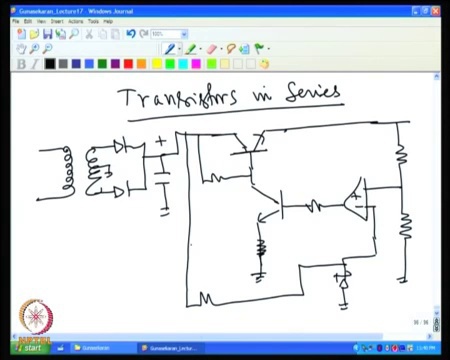 Gunasekaran_Lecture17 - Windows Journal
File Edit View Insert Actions Tools Help
100%
B I
Transistors in Series
+
+
-
start
Gunasekaran
Gunasekaran_Lectur...